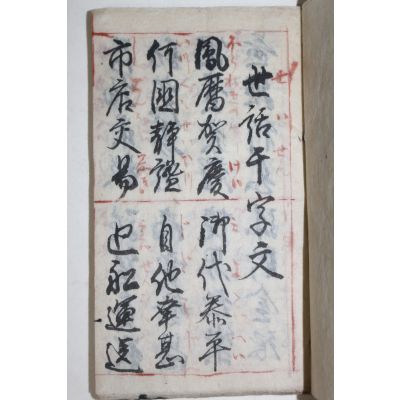 世話千字文
鳳暦賀慶 御代泰平
何國静謐 自他幸甚
市店交易 廻船運送